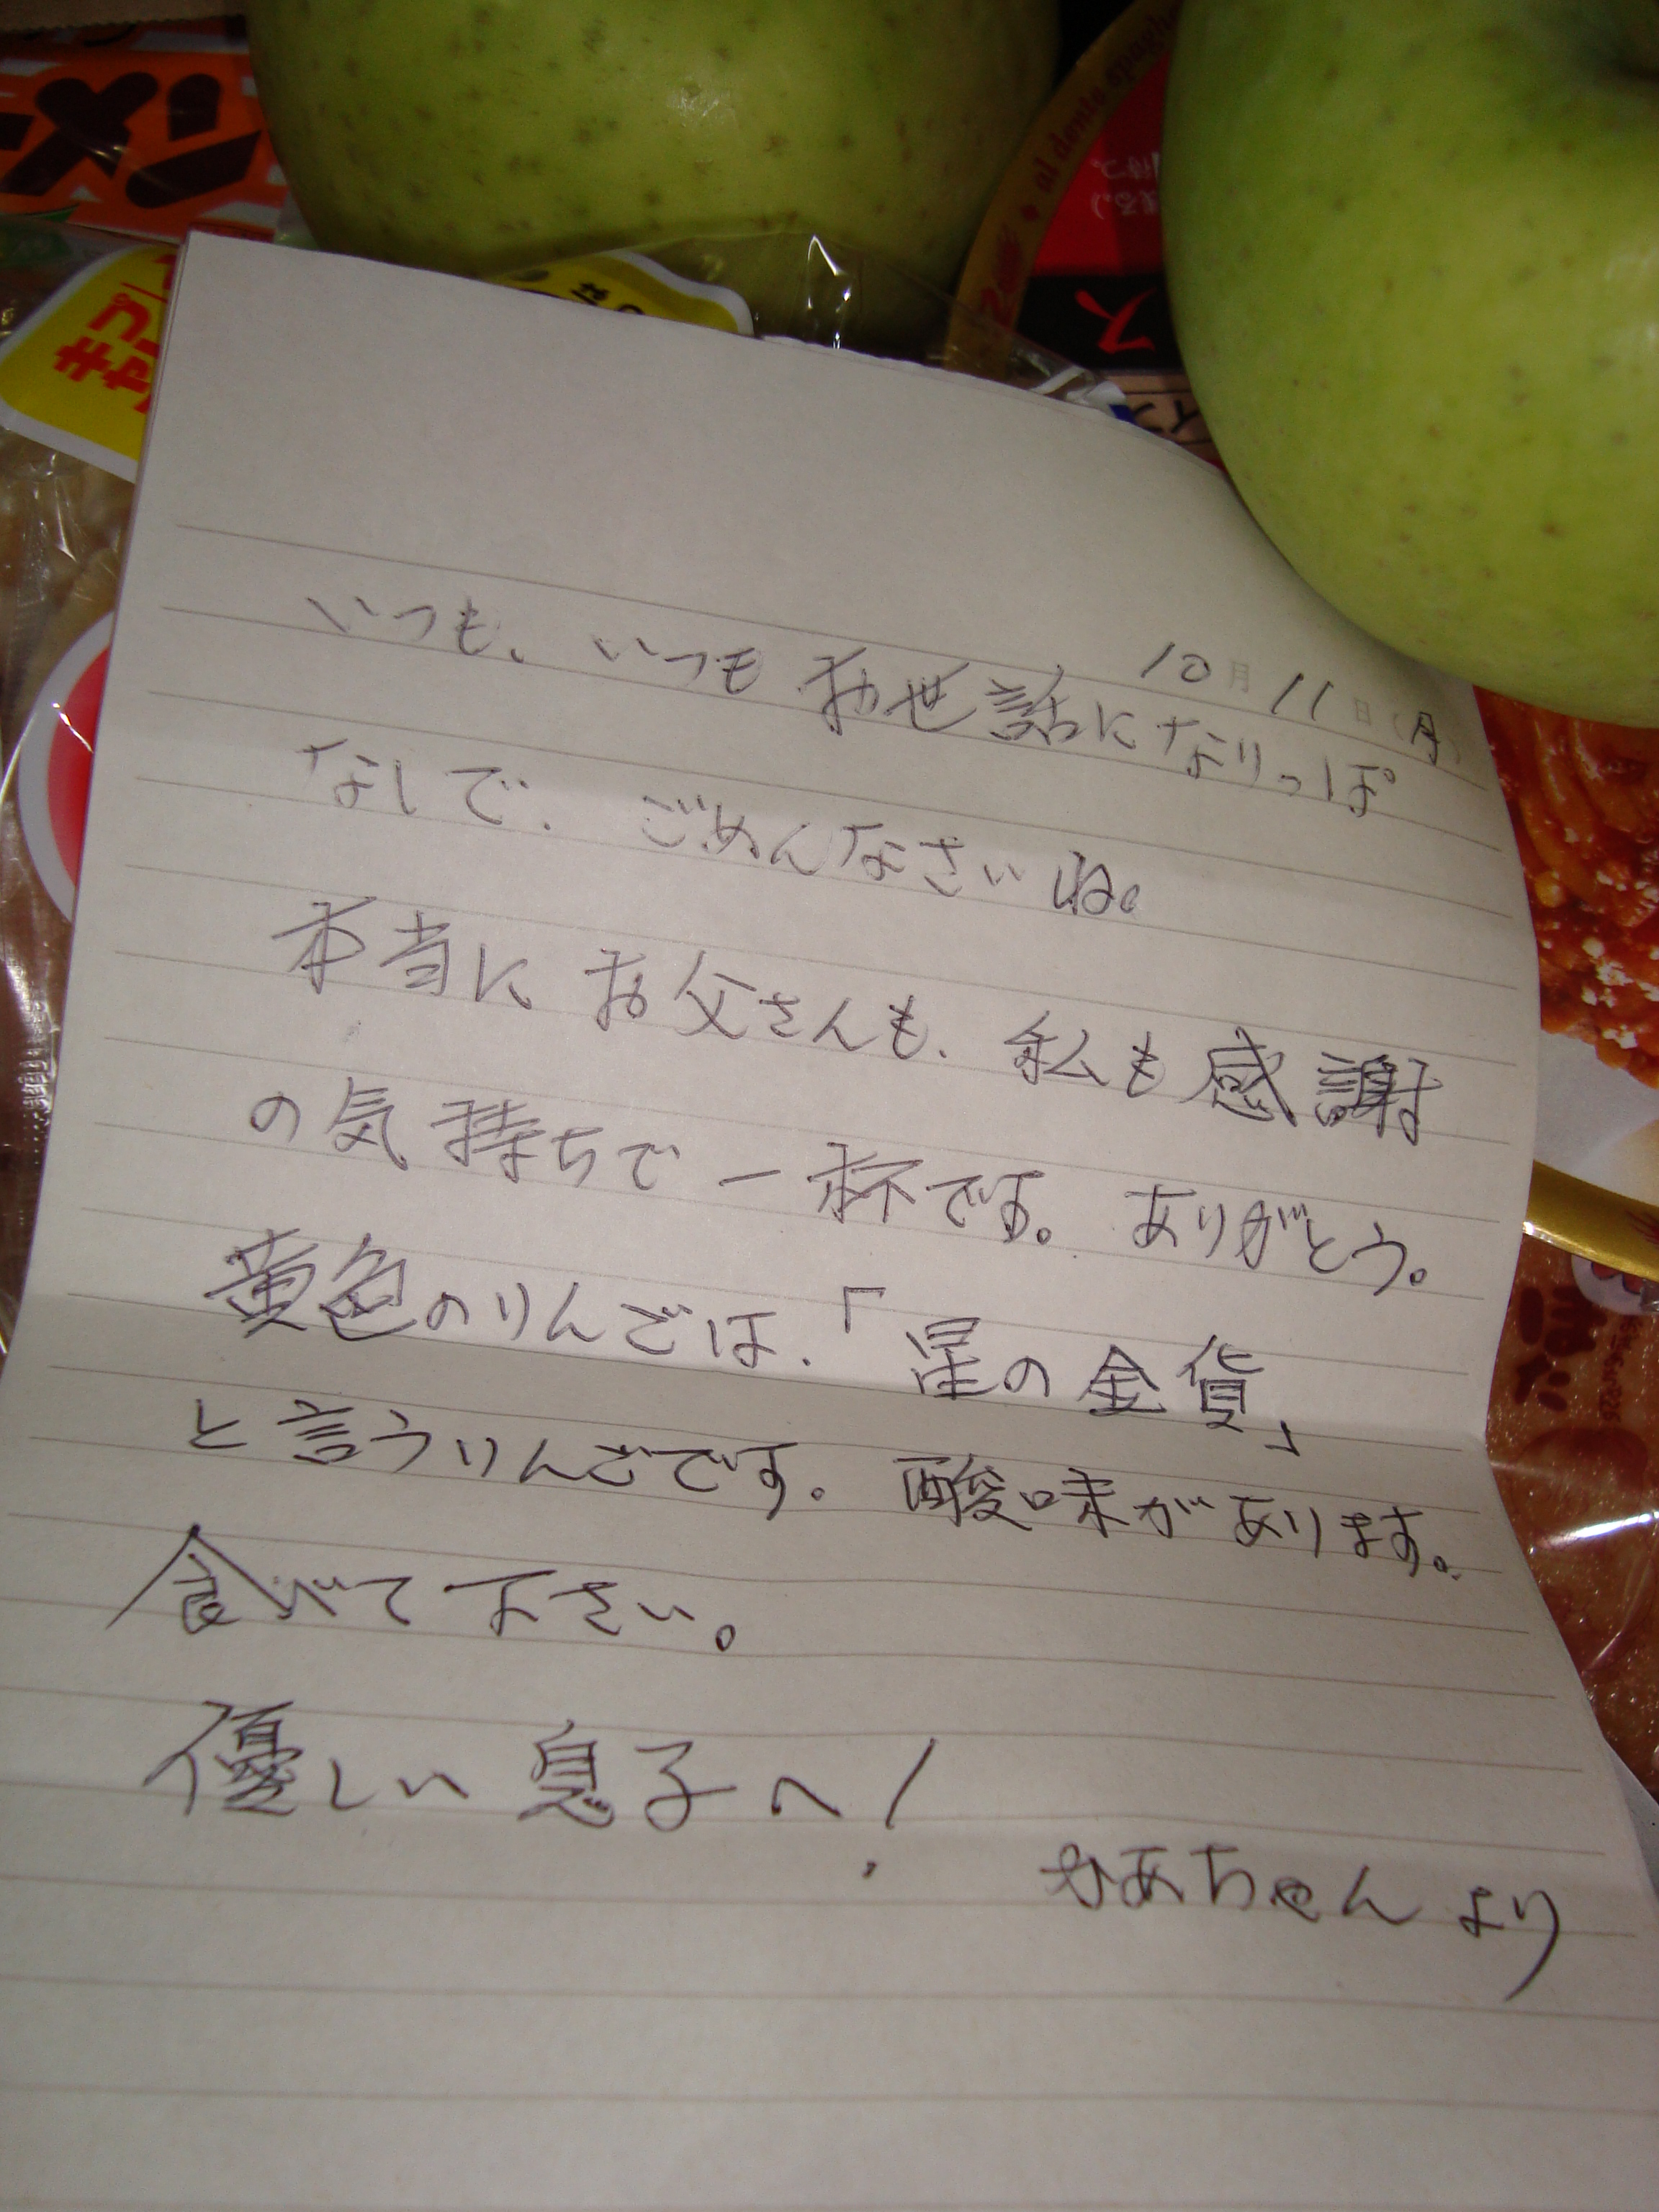 メン
キャプ
al dente spaghe
ス
10月11日(月)
いつも、いつもお世話になりっぱ
なしで、ごめんなさいね。
本当にお父さんも、私も感謝
の気持ちで一杯です。ありがとう。
黄色のりんごは、「星の金貨」
と言うりんごです。酸味があります。
食べて下さい。
優しい息子へ!
かあちゃんより